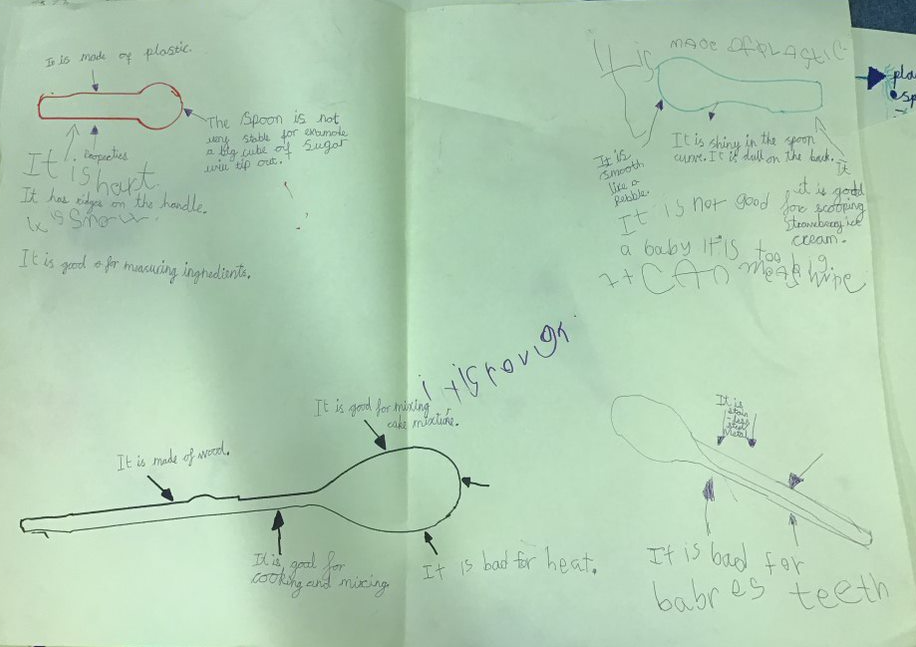 It is made of plastic.
The Spoon is not
very stable for examode
a big cube of sugar
will tip out.
Properties
It is hart
It has ridges on the handle.
It is good o for measuring ingredients.
It is
MADE OF PLASTIC
It is shiny in the spoon
curve. It is dull on the back.
It is
smooth
like a
pebble.
It
it is good
for scooping
strawberry ice
cream.
It is not good
a baby it is too big
it is rough
It is good for mixing
cake mixture.
It is made of wood.
It is good for
cooking and mixing
It is bad for heat.
It is
stain
-less
steel
metal
It is bad for
babres teeth
pla
sp